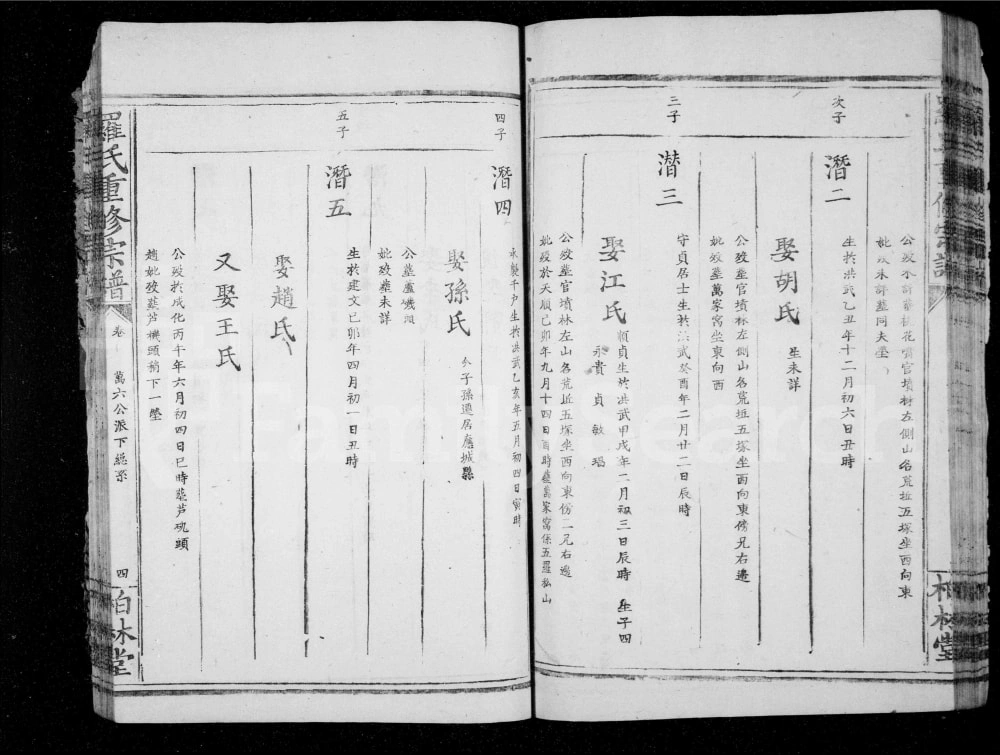 公歿水詳葬桃花嘴官墳林左側山名荒坵五塚坐西向東
妣歿未詳墓同夫塋
次子
潛二
生於洪武乙丑年十二月初六日丑時
娶胡氏
生未詳
公歿葬官墳林左側山名荒坵五塚坐西向東傍兄右邊
妣歿葬萬家窩坐東向西
三子
潛三
守貞居士生於洪武癸酉年二月廿二日辰時
娶江氏
順貞生於洪武甲戌年二月初三日辰時 生子四
永貴 貞 敏 瑒
公歿葬官墳林左山名荒坵五塚坐西向東傍二兄右邊
妣歿於天順己卯年九月十四日酉時葬萬家窩係五羅私山
四子
潛四
承襲千户生於洪武乙亥年五月初四日寅時
娶孫氏
今子孫遷居應城縣
公墓蘆磯頭
妣歿葬未詳
五子
潛五
生於建文己卯年四月初一日丑時
娶趙氏
又娶王氏
公歿於成化丙午年六月初四日巳時葬芦磯頭
趙妣歿葬芦機頭稍下一塋
羅氏重修宗譜
卷
萬六公派下總系
四
柏林堂
柏林堂